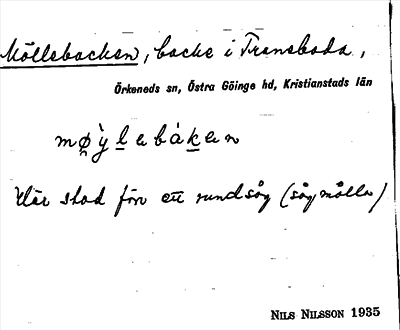 Möllebacken, backe i Transboda,
Örkeneds sn, Östra Göinge hd, Kristianstads län
Här stod förr ett rundsåg (sågmölla)
NILS NILSSON 1935